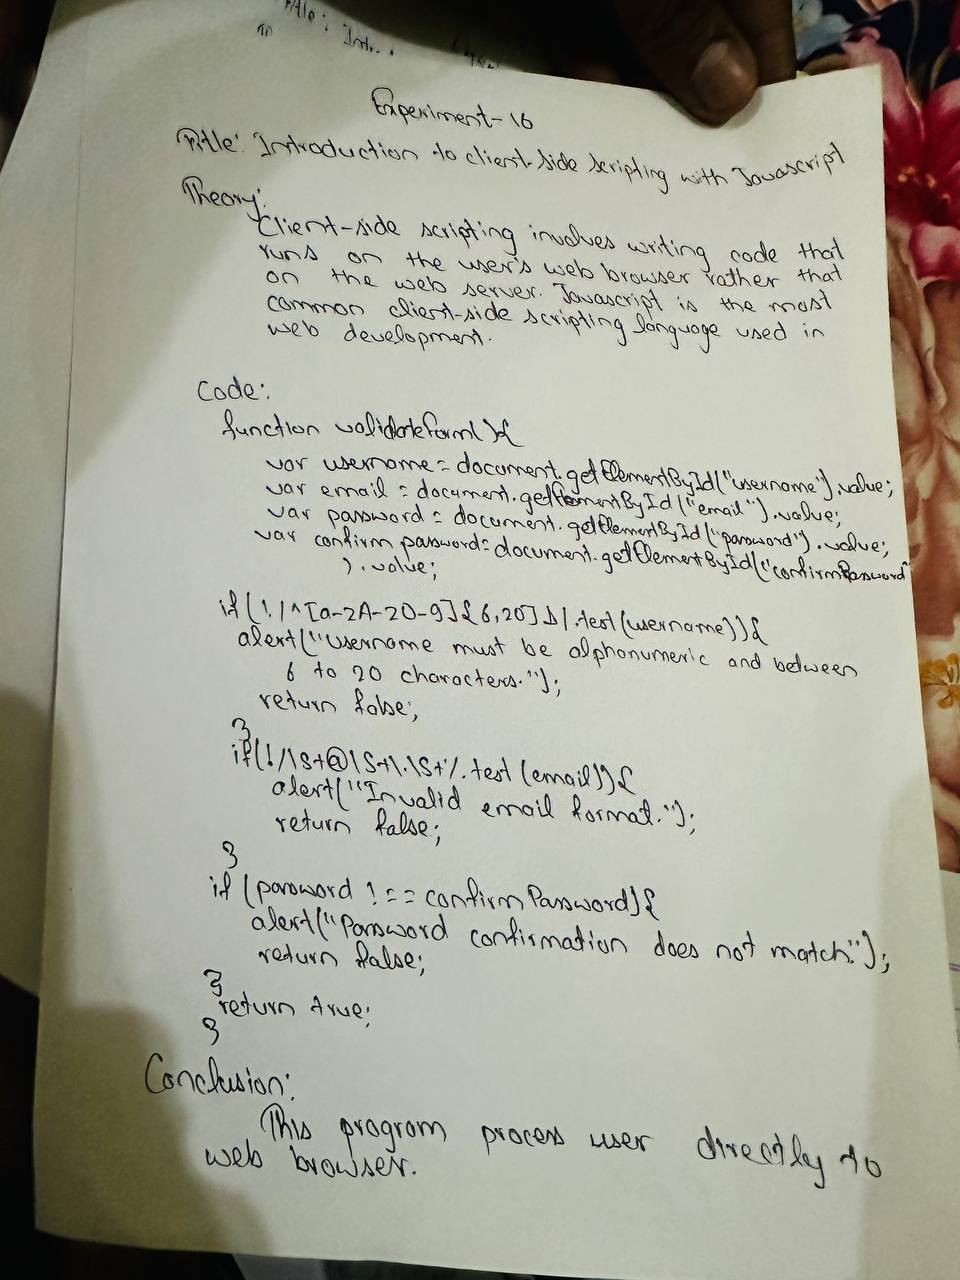 Title: Intr
Experiment-16
Title: Introduction to client-side scripting with Javascript
Theory:
Client-side scripting involves writing code that
runs on the user's web browser rather that
on the web server. Javascript is the most
common client-side scripting language used in
web development.
Code:
function validateform(){
var username = document.getElementById("username").value;
var email = document.getElementById("email").value;
var password = document.getElementById("password").value;
var confirm password = document.getElementById("confirmPassword"
).value;
if(!/^[a-2A-20-9]{6,20}$/.test(username)){
alert("username must be alphanumeric and between
6 to 20 characters.");
return false;
}
if(!/\S+@\S+\.\S+/.test(email)){
alert("Invalid email format.");
return false;
}
if (password !== confirmPassword){
alert("Password confirmation does not match.");
return false;
}
return true;
}
Conclusion:
This program process user directly to
web browser.